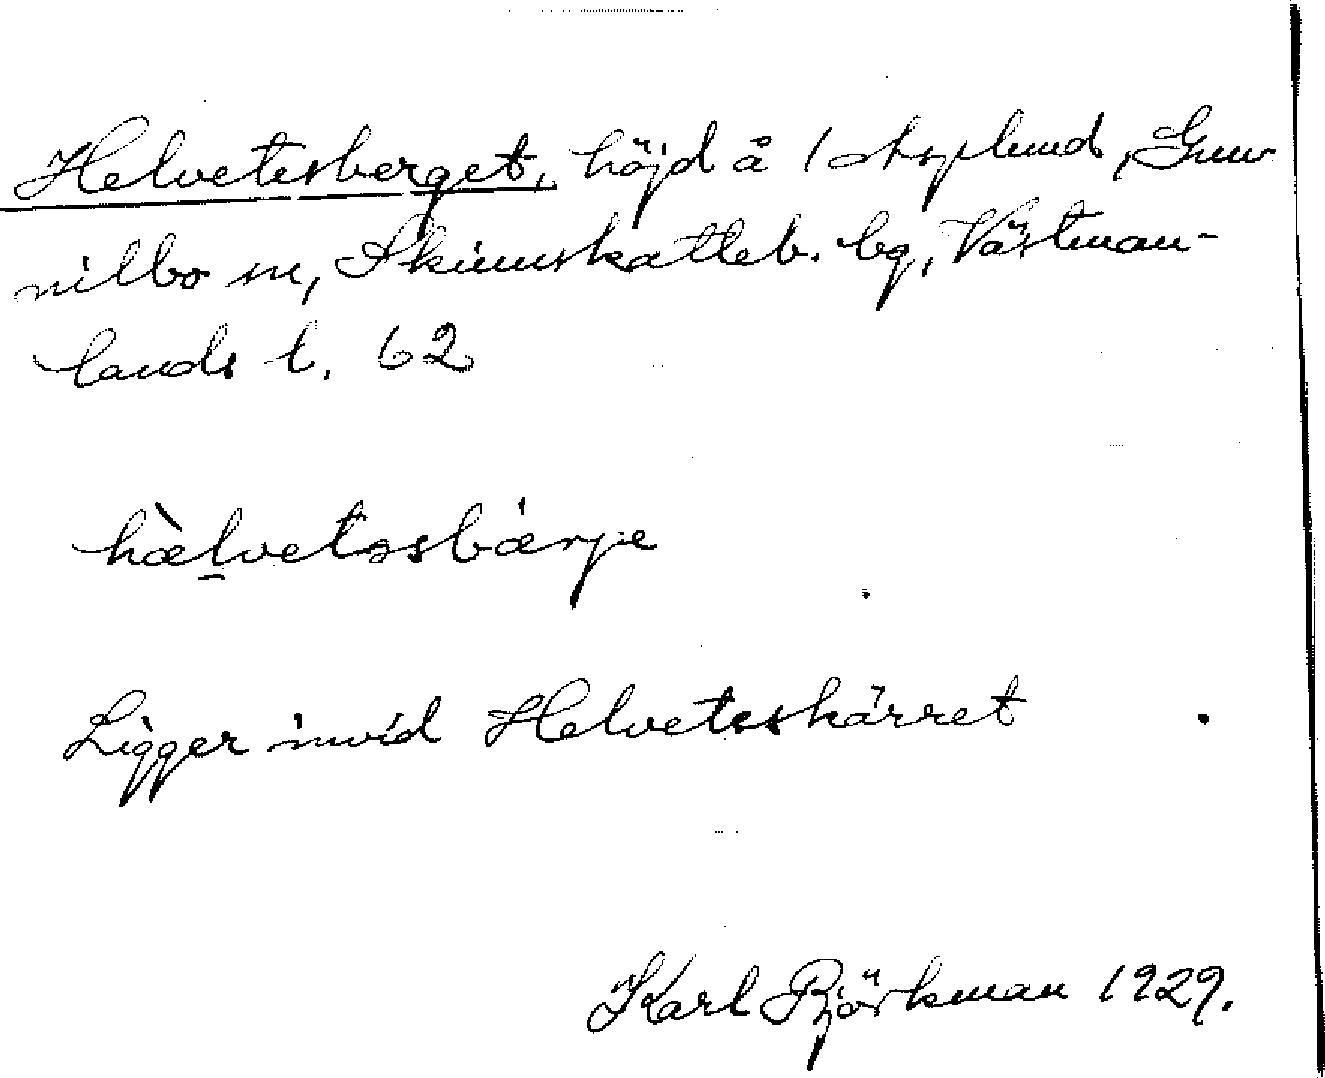 Helvetesberget, höjd å 1 Asplund, Gun-
nilbo sn, Skinnskatteb. bg, Västman-
lands l. 62
hælvetəsbærje
Ligger invid Helveteskärret
Karl Björkman 1929.